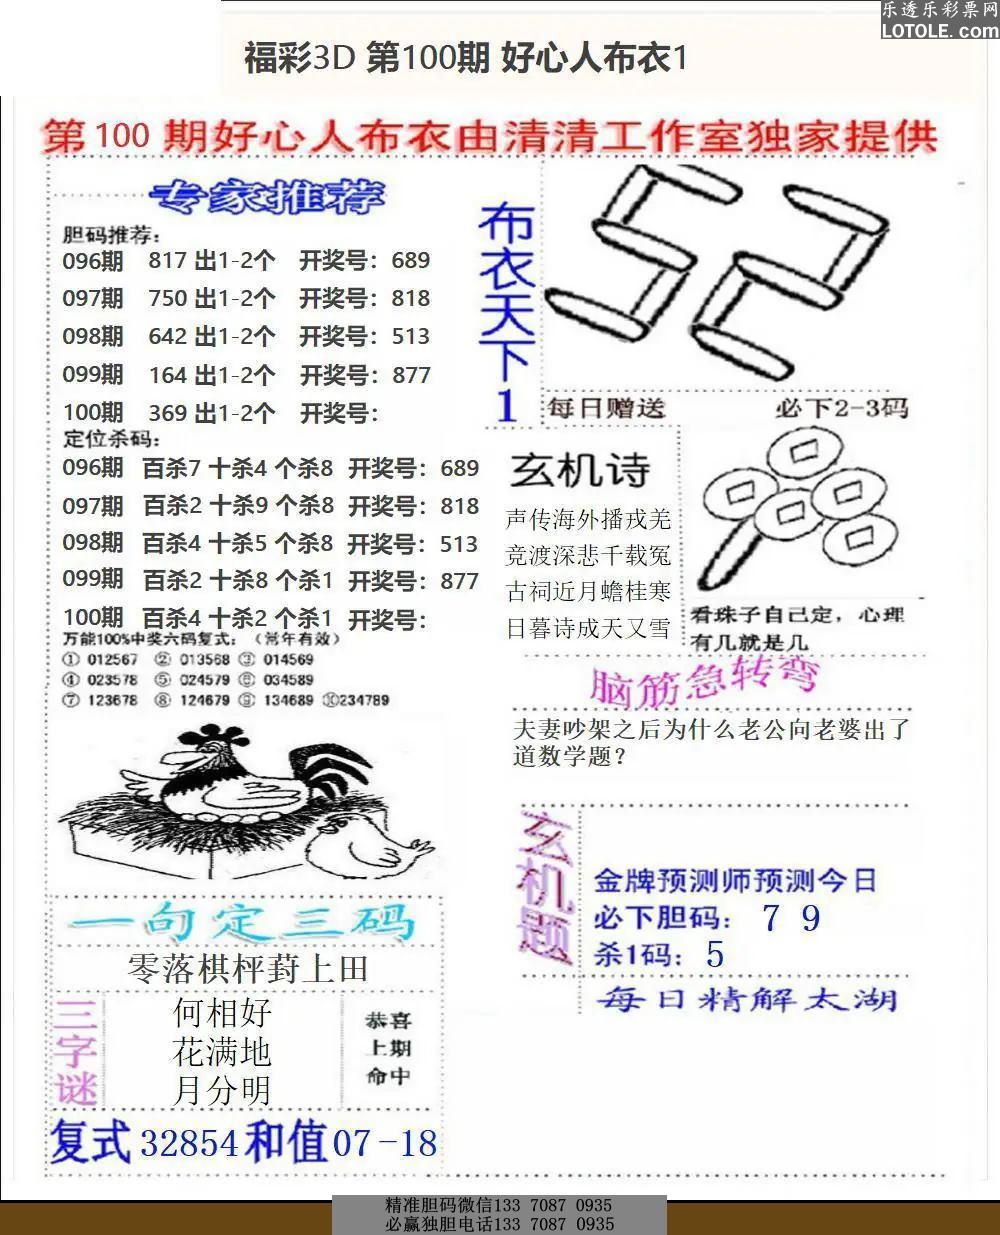 乐透乐彩票网
LOTOLE.com
福彩3D 第100期 好心人布衣1
第 100 期好心人布衣由清清工作室独家提供
专家推荐
胆码推荐：
096期 817 出1-2个 开奖号：689
097期 750 出1-2个 开奖号：818
098期 642 出1-2个 开奖号：513
099期 164 出1-2个 开奖号：877
100期 369 出1-2个 开奖号：
定位杀码：
096期 百杀7 十杀4 个杀8 开奖号：689
097期 百杀2 十杀9 个杀8 开奖号：818
098期 百杀4 十杀5 个杀8 开奖号：513
099期 百杀2 十杀8 个杀1 开奖号：877
100期 百杀4 十杀2 个杀1 开奖号：
万能100%中奖六码复式：（常年有效）
① 012567 ② 013568 ③ 014569
④ 023578 ⑤ 024579 ⑥ 034589
⑦ 123678 ⑧ 124679 ⑨ 134689 ⑩234789
布衣天下1
52
每日赠送 必下2-3码
玄机诗
声传海外播戎羌
竞渡深悲千载冤
古祠近月蟾桂寒
日暮诗成天又雪
看珠子自己定，心理
有几就是几
脑筋急转弯
夫妻吵架之后为什么老公向老婆出了
道数学题？
玄机题
金牌预测师预测今日
必下胆码： 7 9
杀1码： 5
每日精解太湖
一句定三码
零落棋枰葑上田
三字谜
何相好
花满地
月分明
恭喜
上期
命中
复式 32854 和值 07-18
精准胆码微信133 7087 0935
必赢独胆电话133 7087 0935